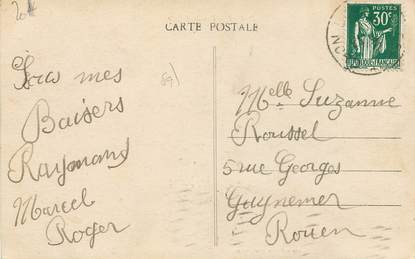 20
CARTE POSTALE
POSTES
30c
REPUBLIQUE FRANÇAISE
mes
Baisers
Raymond
Marcel
Roger
Melle Suzanne
Roussel
5 rue Georges
Guynemer
Rouen